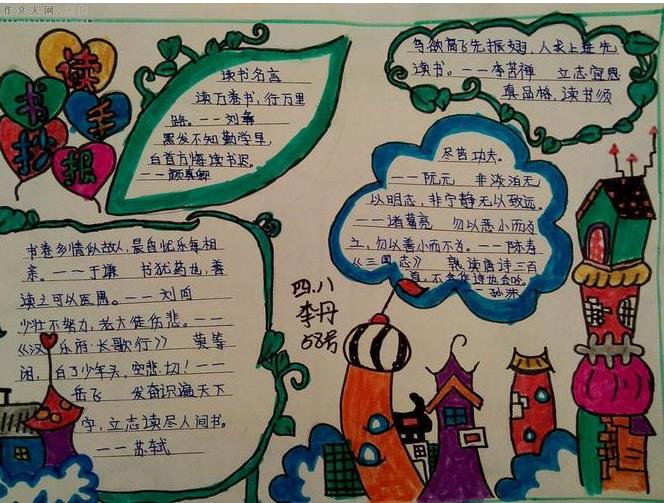 作文人网
读书手抄报
读书名言
读万卷书，行万里
路。——刘彝
黑发不知勤学早，
白首方悔读书迟。
——颜真卿
鸟欲高飞先振翅，人求上进先
读书。——李苦禅 立志宜思
真品格，读书须
尽苦功夫。
——阮元 非淡泊无
以明志，非宁静无以致远。
——诸葛亮 勿以恶小而为
之，勿以善小而不为。——陈寿
《三国志》 熟读唐诗三百
首，不会作诗也会吟。
孙洙
书卷多情似故人，晨昏忧乐每相
亲。——于谦 书犹药也，善
读之可以医愚。——刘向
少壮不努力，老大徒伤悲。——
《汉乐府·长歌行》 莫等
闲，白了少年头，空悲切！——
岳飞 发奋识遍天下
字，立志读尽人间书。
——苏轼
四.八
李丹
58号